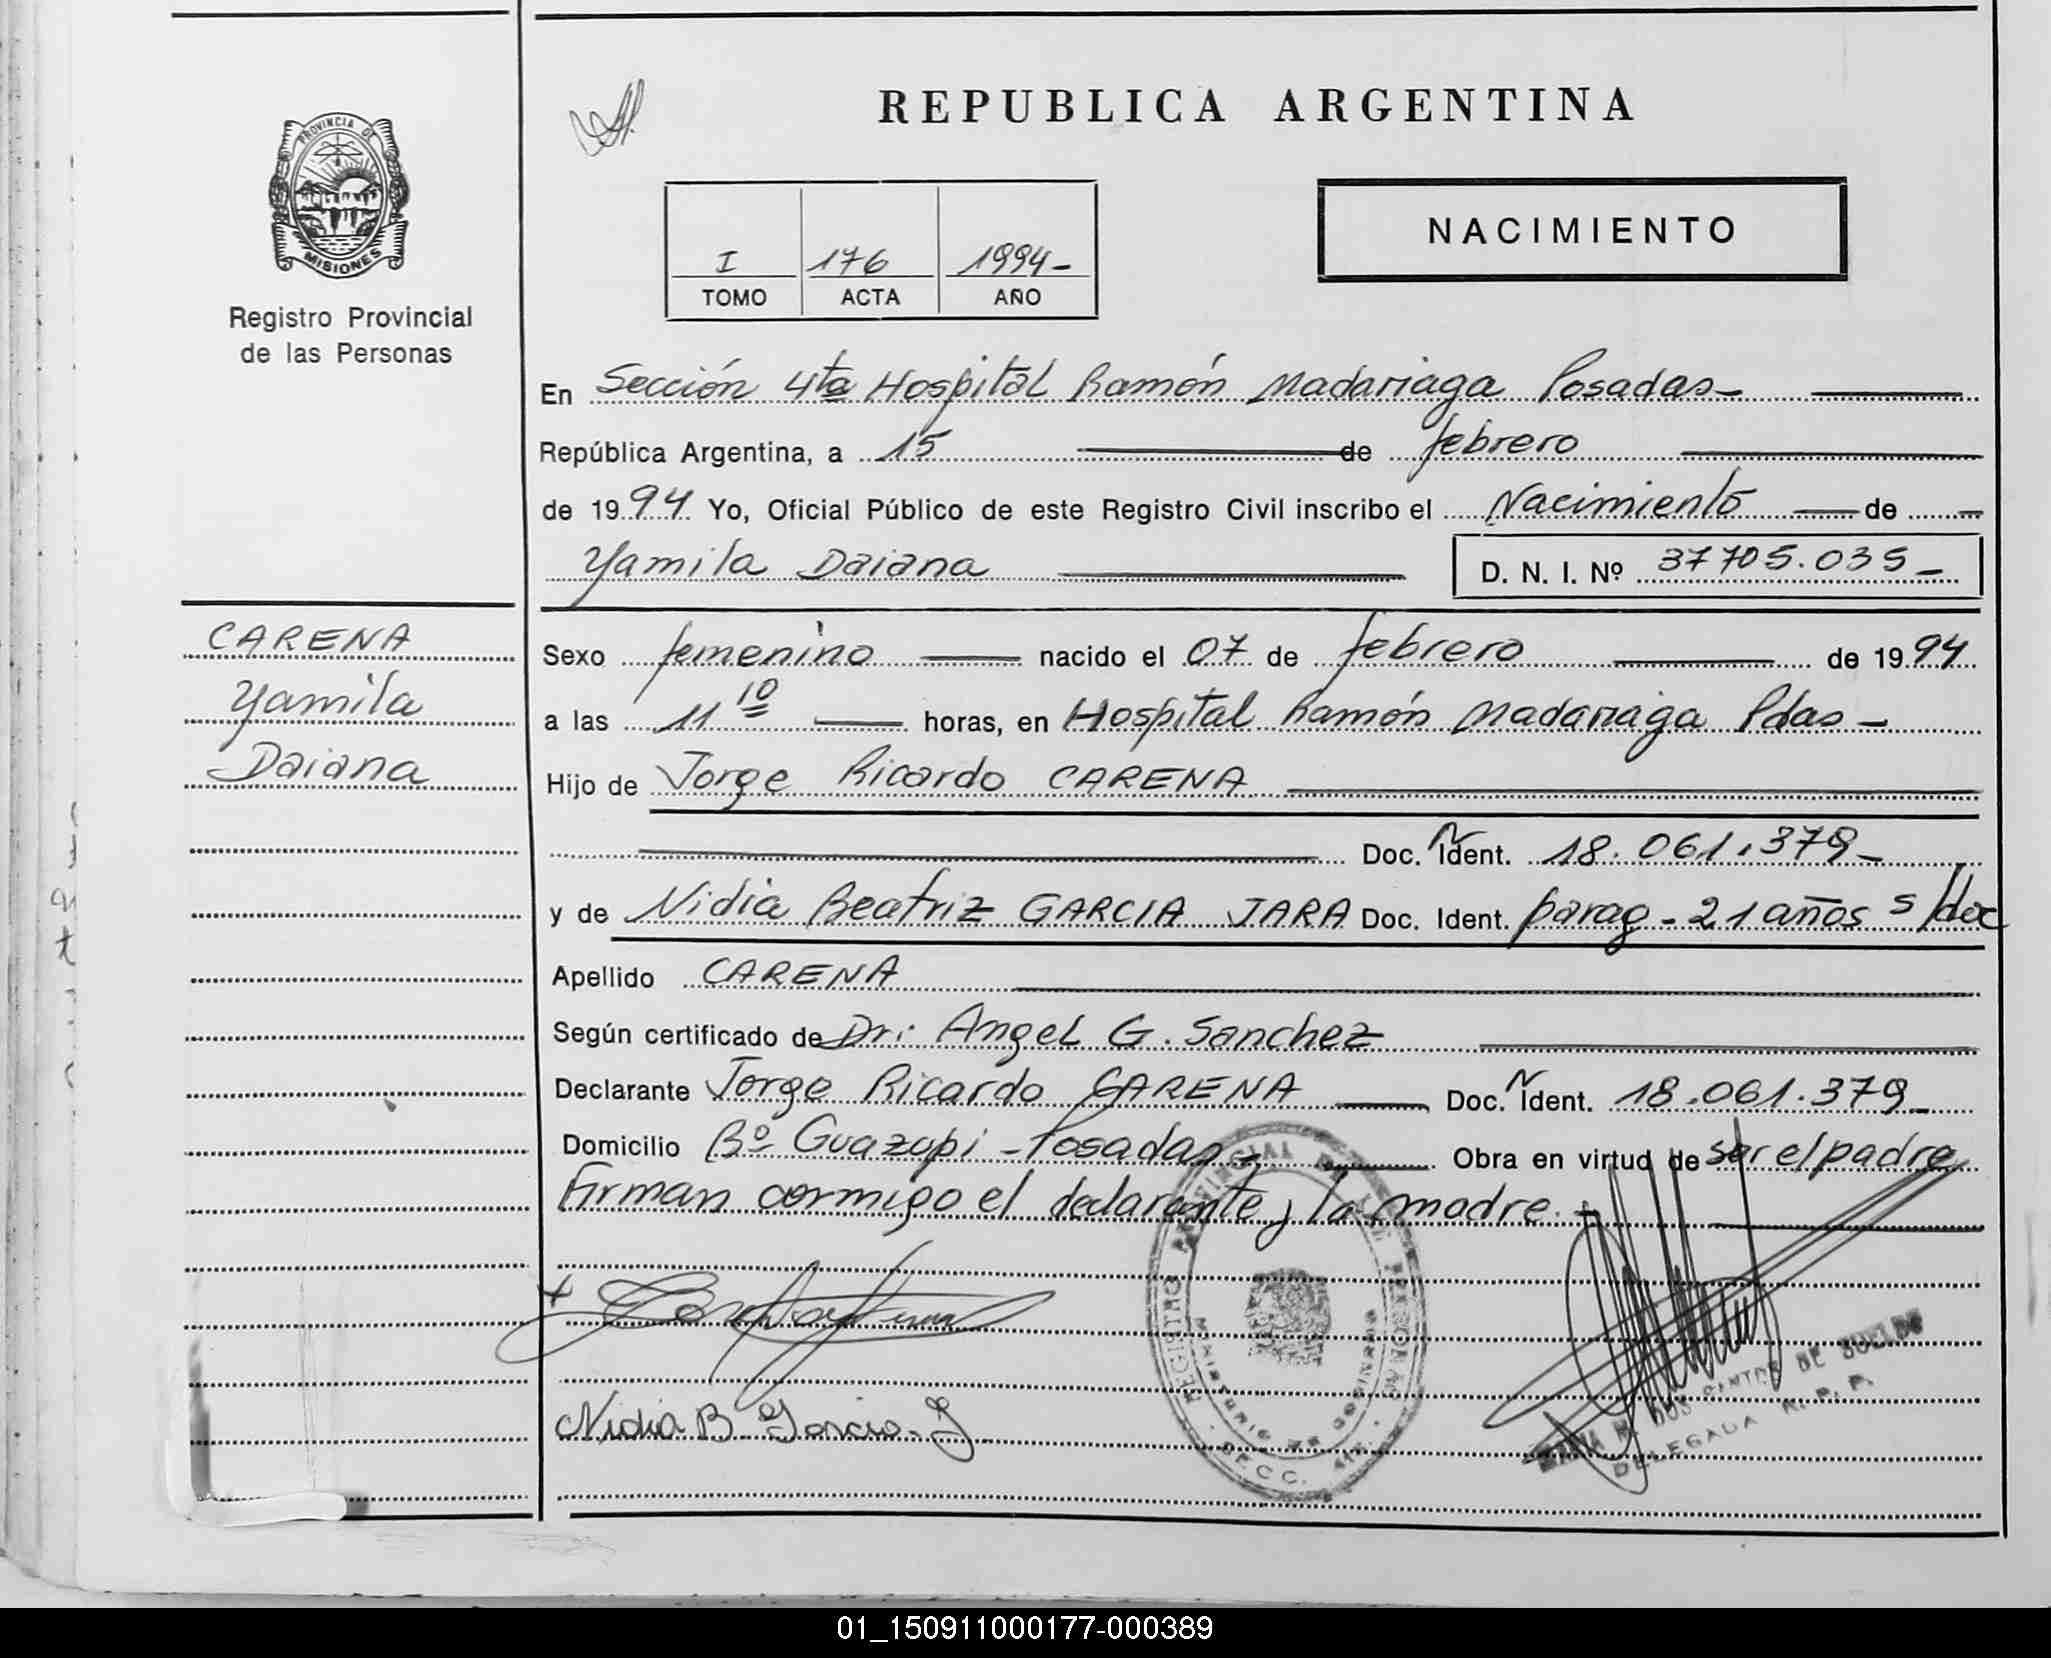 REPUBLICA ARGENTINA
PROVINCIA DE
MISIONES
Registro Provincial
de las Personas
I 176 1994-
TOMO ACTA AÑO
NACIMIENTO
En Sección 4ta Hospital Ramón Madariaga Posadas-
República Argentina, a 15 de febrero
de 1994 Yo, Oficial Público de este Registro Civil inscribo el Nacimiento de
Yamila Daiana D. N. I. Nº 37705.035-
CARENA
Yamila
Daiana
Sexo femenino nacido el 07 de febrero de 1994
a las 11 10 horas, en Hospital Ramón Madariaga Pdas-
Hijo de Jorge Ricardo CARENA
Doc. N Ident. 18.061.379-
y de Nidia Beatriz GARCIA JARA Doc. Ident. parag-21 años s/doc
Apellido CARENA
Según certificado de Dr: Angel G. Sanchez
Declarante Jorge Ricardo CARENA Doc. N Ident. 18.061.379-
Domicilio Bº Guazupi-Posadas- Obra en virtud de ser el padre
Firman conmigo el declarante y la madre.-
Nidia B. Garcia. J
REGISTRO PROVINCIAL DE LAS PERSONAS
MINISTERIO DE GOBIERNO
DELEGADA R. P. P.
01_150911000177-000389